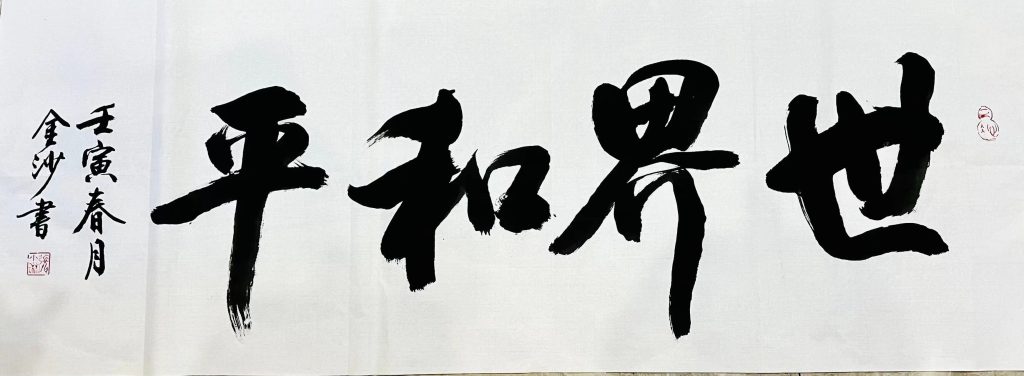 世界和平
壬寅春月
金沙書